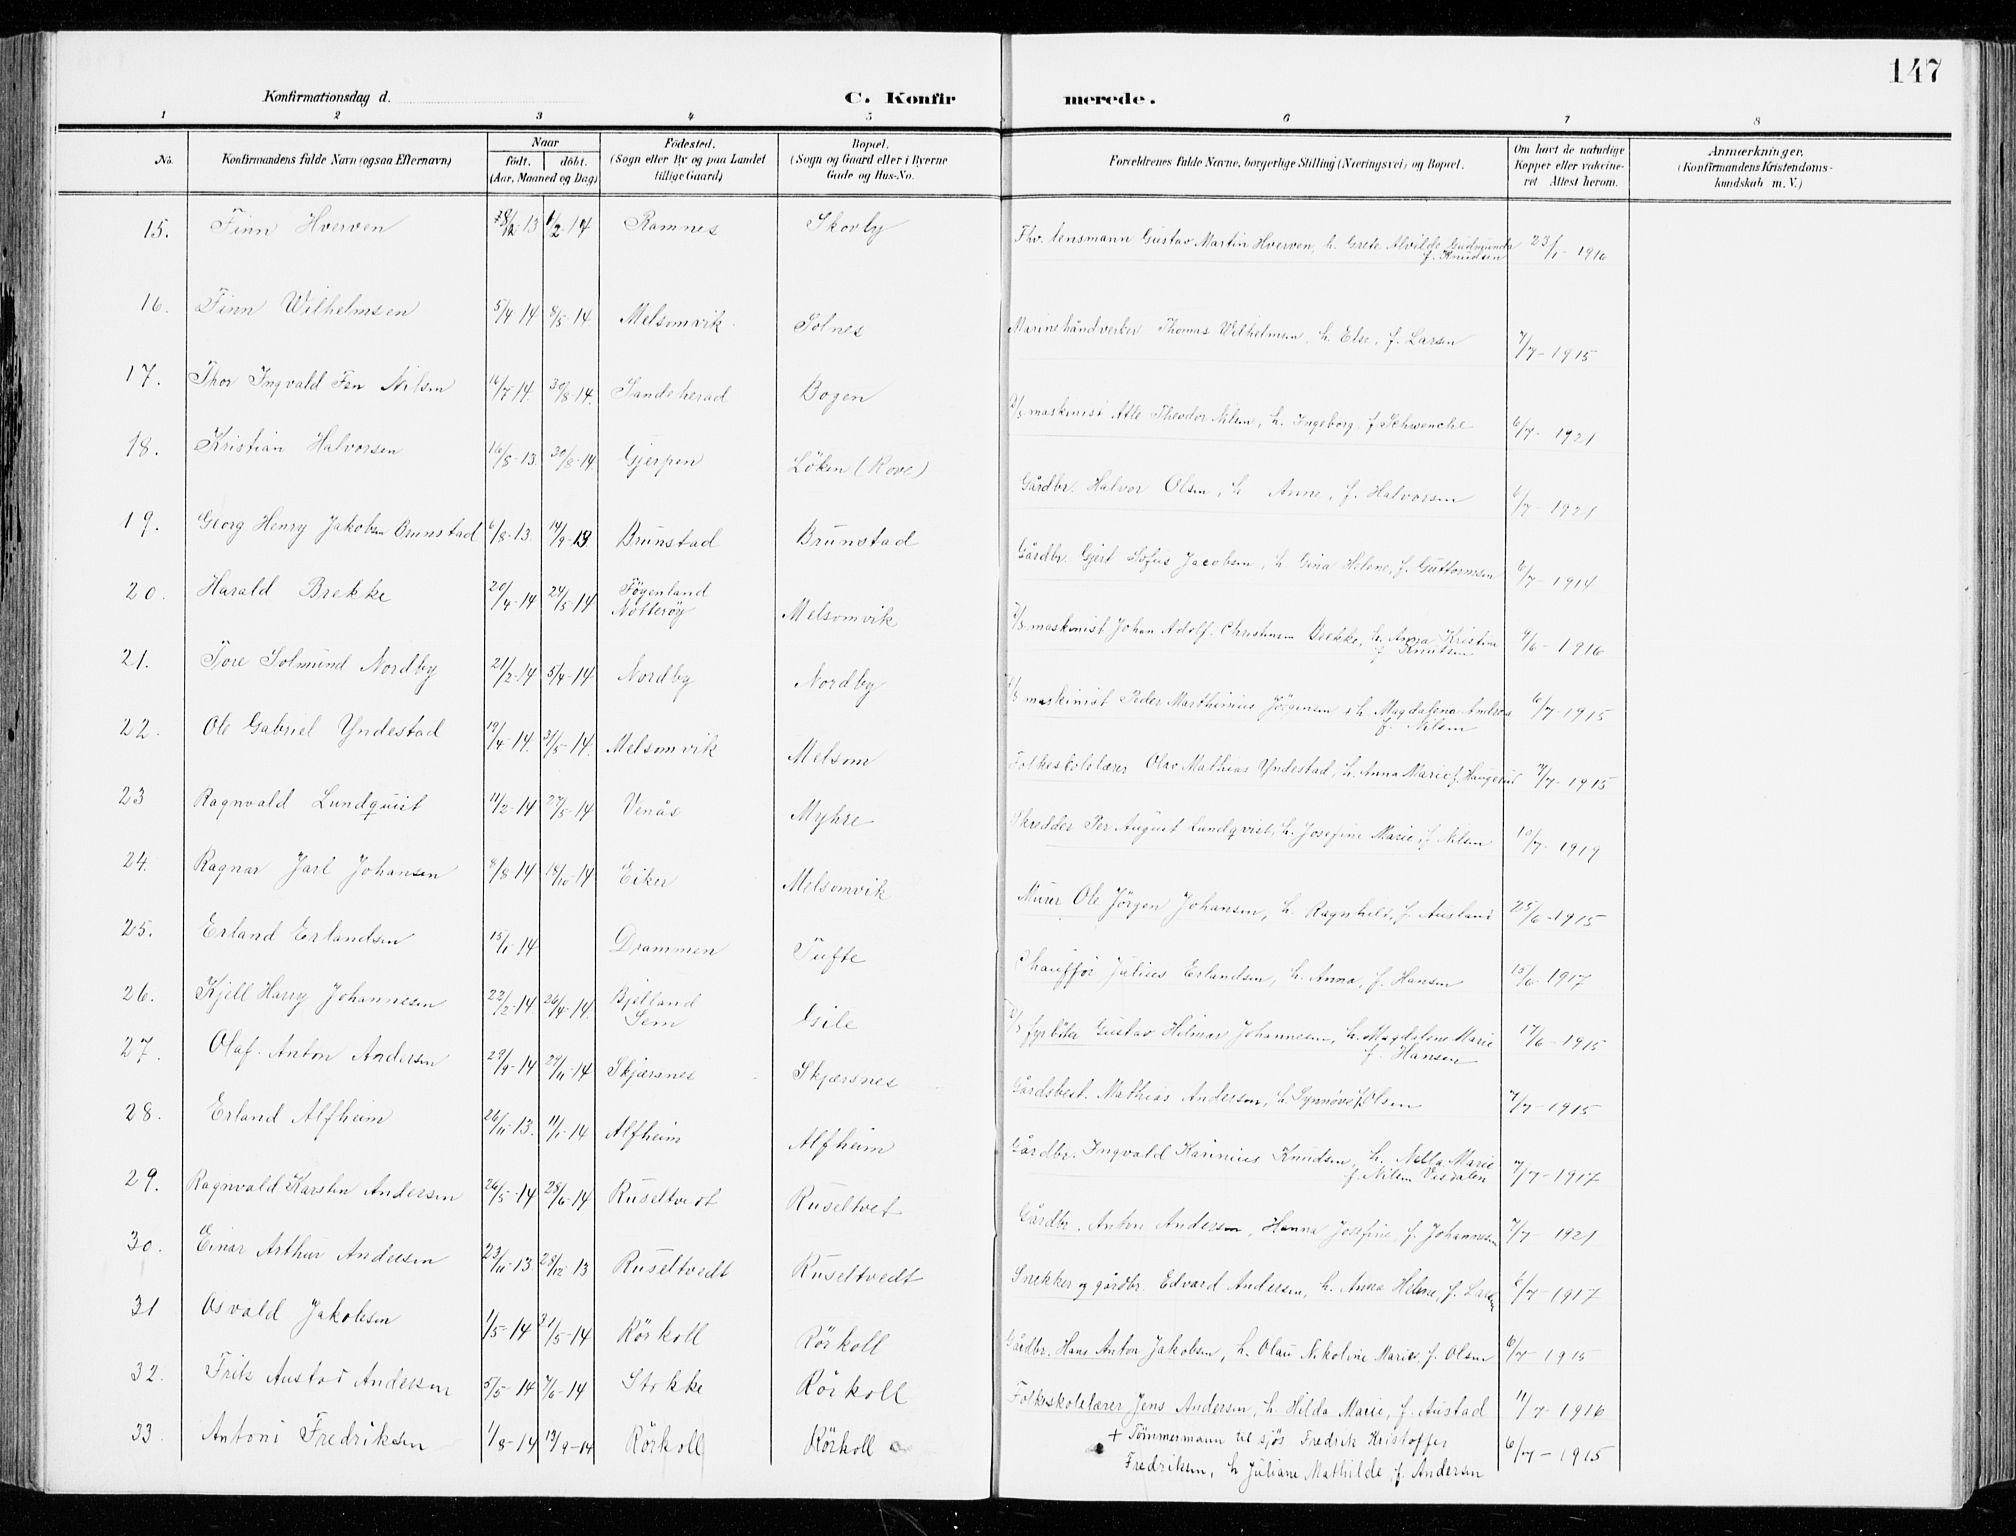 147
Konfirmationsdag d.
C. Konfirmerede.
1 2 3 4 5 6 7 8
No. Konfirmandens fulde Navn (ogsaa Efternavn) Naar født. døbt. (Aar, Maaned og Dag) Fødested. (Sogn eller By og paa Landet tillige Gaard) Bopæl. (Sogn og Gaard eller i Byerne Gade og Hus-No. Forældrenes fulde Navne, borgerlige Stilling (Næringsvei) og Bopæl. Om havt de naturlige Kopper eller vakcineret Attest herom. Anmærkninger. (Konfirmandens Kristendomskundskab m. V.)
15. Finn Hverven 1/2-14 Ramnes Skovby Fhv. lensmann Gustav Martin Hverven, h. Grete Alvilde Gudmunda f. Knudsen 23/1-1916
16. Finn Wilhelmsen 5/4 14 8/5-14. Melsomvik Solnes Marinehåndverker Thomas Wilhelmsen, h. Else, f. Larsen 7/7-1915
17. Thor Ingvald Fen Nilsen 16/7-14. 30/8-14. Sandeherad Bogen maskinist Atle Theodor Nilsen, h. Ingeborg, f. Schwencke 6/7-1921
18. Kristian Halvorsen 16/8-13. 30/8-14 Gjerpen Löken (Rove) Gårdbr. Halvor Olsen, h. Anne, f. Halvorsen 6/7-1921
19. Georg Henry Jakobsen Brunstad 6/8-13. 14/9-13 Brunstad Brunstad Gårdbr. Gjert Sofus Jacobsen, h. Gina Helene, f. Guttormsen 6/7-1914
20. Harald Brekke 20/4-14 24/5-14 Föyenland Nötteröy Melsomvik maskinist Johan Adolf Christensen Brekke, h. Anna Kristine f. Knutsen 9/6-1916
21. Tore Solmund Nordby 21/2-14 5/4-14 Nordby Nordby maskinist Peder Marthinius Jörgensen, h. Magdalena Andrea f. Nilsen 6/7-1915
22. Ole Gabriel Yndestad 19/4-14. 31/5-14. Melsomvik Melsom Folkeskolelærer Olav Mathias Yndestad, h. Anna Marie f. Haugerud 7/7-1915
23 Ragnvald Lundquist 11/2-14 27/5-14 Venås Myhre Skredder Per August Lundqvist, h. Josefine Marie, f. Nilsen 10/7-1919
24. Ragnar Jarl Johansen 8/8-14 18/10-14 Eiker Melsomvik Murer Ole Jörgen Johansen, h. Ragnhild, f. Ausland 25/6-1915
25. Erland Erlandsen 15/1-14 Drammen Tufte Chauffør Julius Erlandsen, h. Anna, f. Hansen 15/6-1917
26. Kjell Harry Johannesen 22/2-14 26/4-14. Bjelland Sem Gile fyrböter Gustav Hilmar Johannesen, h. Magdalene Marie f. Hansen 17/6-1915
27. Olaf Anton Andersen 29/9-14 29/11-14 Skjærsnes Skjærsnes Gårdsbest. Mathias Andersen, h. Synnöve f. Olsen 7/7-1915
28. Erland Alfheim 26/11-13. 11/1-14 Alfheim Alfheim Gårdbr. Ingvald Karinius Knudsen, h. Nella Marie f. Nilsen Vesdalen 7/7-1917
29. Ragnvald Karsten Andersen 26/5-14 28/6-14 Ruseltvedt Ruseltvet Gårdbr. Anton Andersen, Hanna Josefine, f. Johannesen 7/7-1921
30. Einar Arthur Andersen 23/11-13 28/12-13 Ruseltvedt Ruseltvedt Snekker og gårdbr. Edvard Andersen, h. Anna Helene, f. Larsen 6/7-1917
31 Osvald Jakobsen 1/5-14 21/5-14 Rörkoll Rörkoll Gårdbr. Hans Anton Jakobsen, h. Olau Nikoline Marie, f. Olsen 6/7-1915
32. Frits Austad Andersen 5/5-14 7/6-14 Stokke Rörkoll Folkeskolelærer Jens Andersen, h. Hilda Marie, f. Austad 11/7-1916
33. Antoni Fredriksen 1/8-14 13/9-14 Rörkoll Rörkoll + Tömmermann til sjös Fredrik Kristoffer Fredriksen, h Juliane Mathilde, f. Andersen 6/7-1915